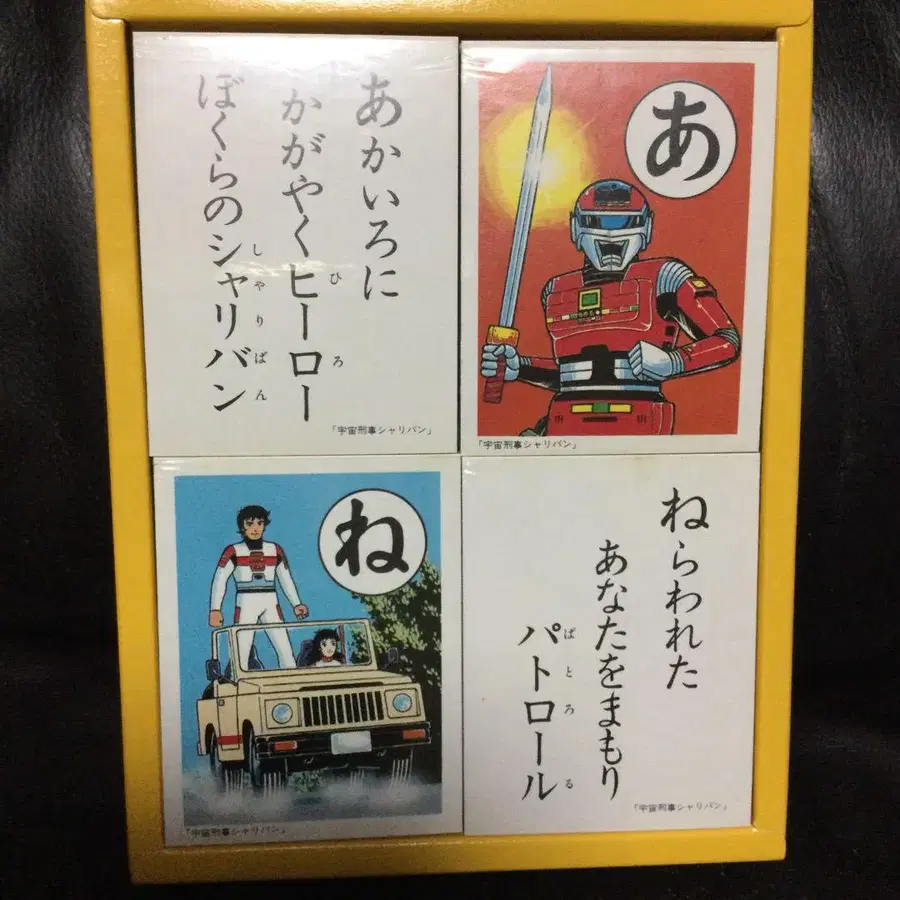 あかいろに
かがやくヒーロー
ひろ
ぼくらのシャリバン
しゃりばん
「宇宙刑事シャリバン」
あ
「宇宙刑事シャリバン」
ね
「宇宙刑事シャリバン」
ねらわれた
あなたをまもり
パトロール
ぱとろる
「宇宙刑事シャリバン」